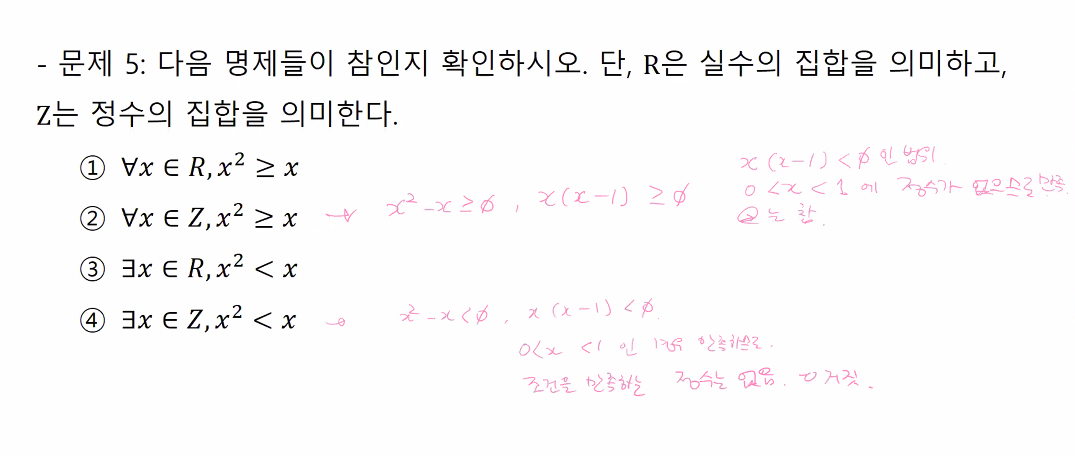 - 문제 5: 다음 명제들이 참인지 확인하시오. 단, R은 실수의 집합을 의미하고,
Z는 정수의 집합을 의미한다.
① ∀x ∈ R, x² ≥ x
② ∀x ∈ Z, x² ≥ x → x²-x≥0, x(x-1) ≥0
x(x-1)<0 인 범위
0<x<1 에 정수가 없으므로 만족
②는 참.
③ ∃x ∈ R, x² < x
④ ∃x ∈ Z, x² < x → x²-x<0, x(x-1)<0.
0<x<1 인 경우 만족하므로.
조건을 만족하는 정수는 없음. 거짓.